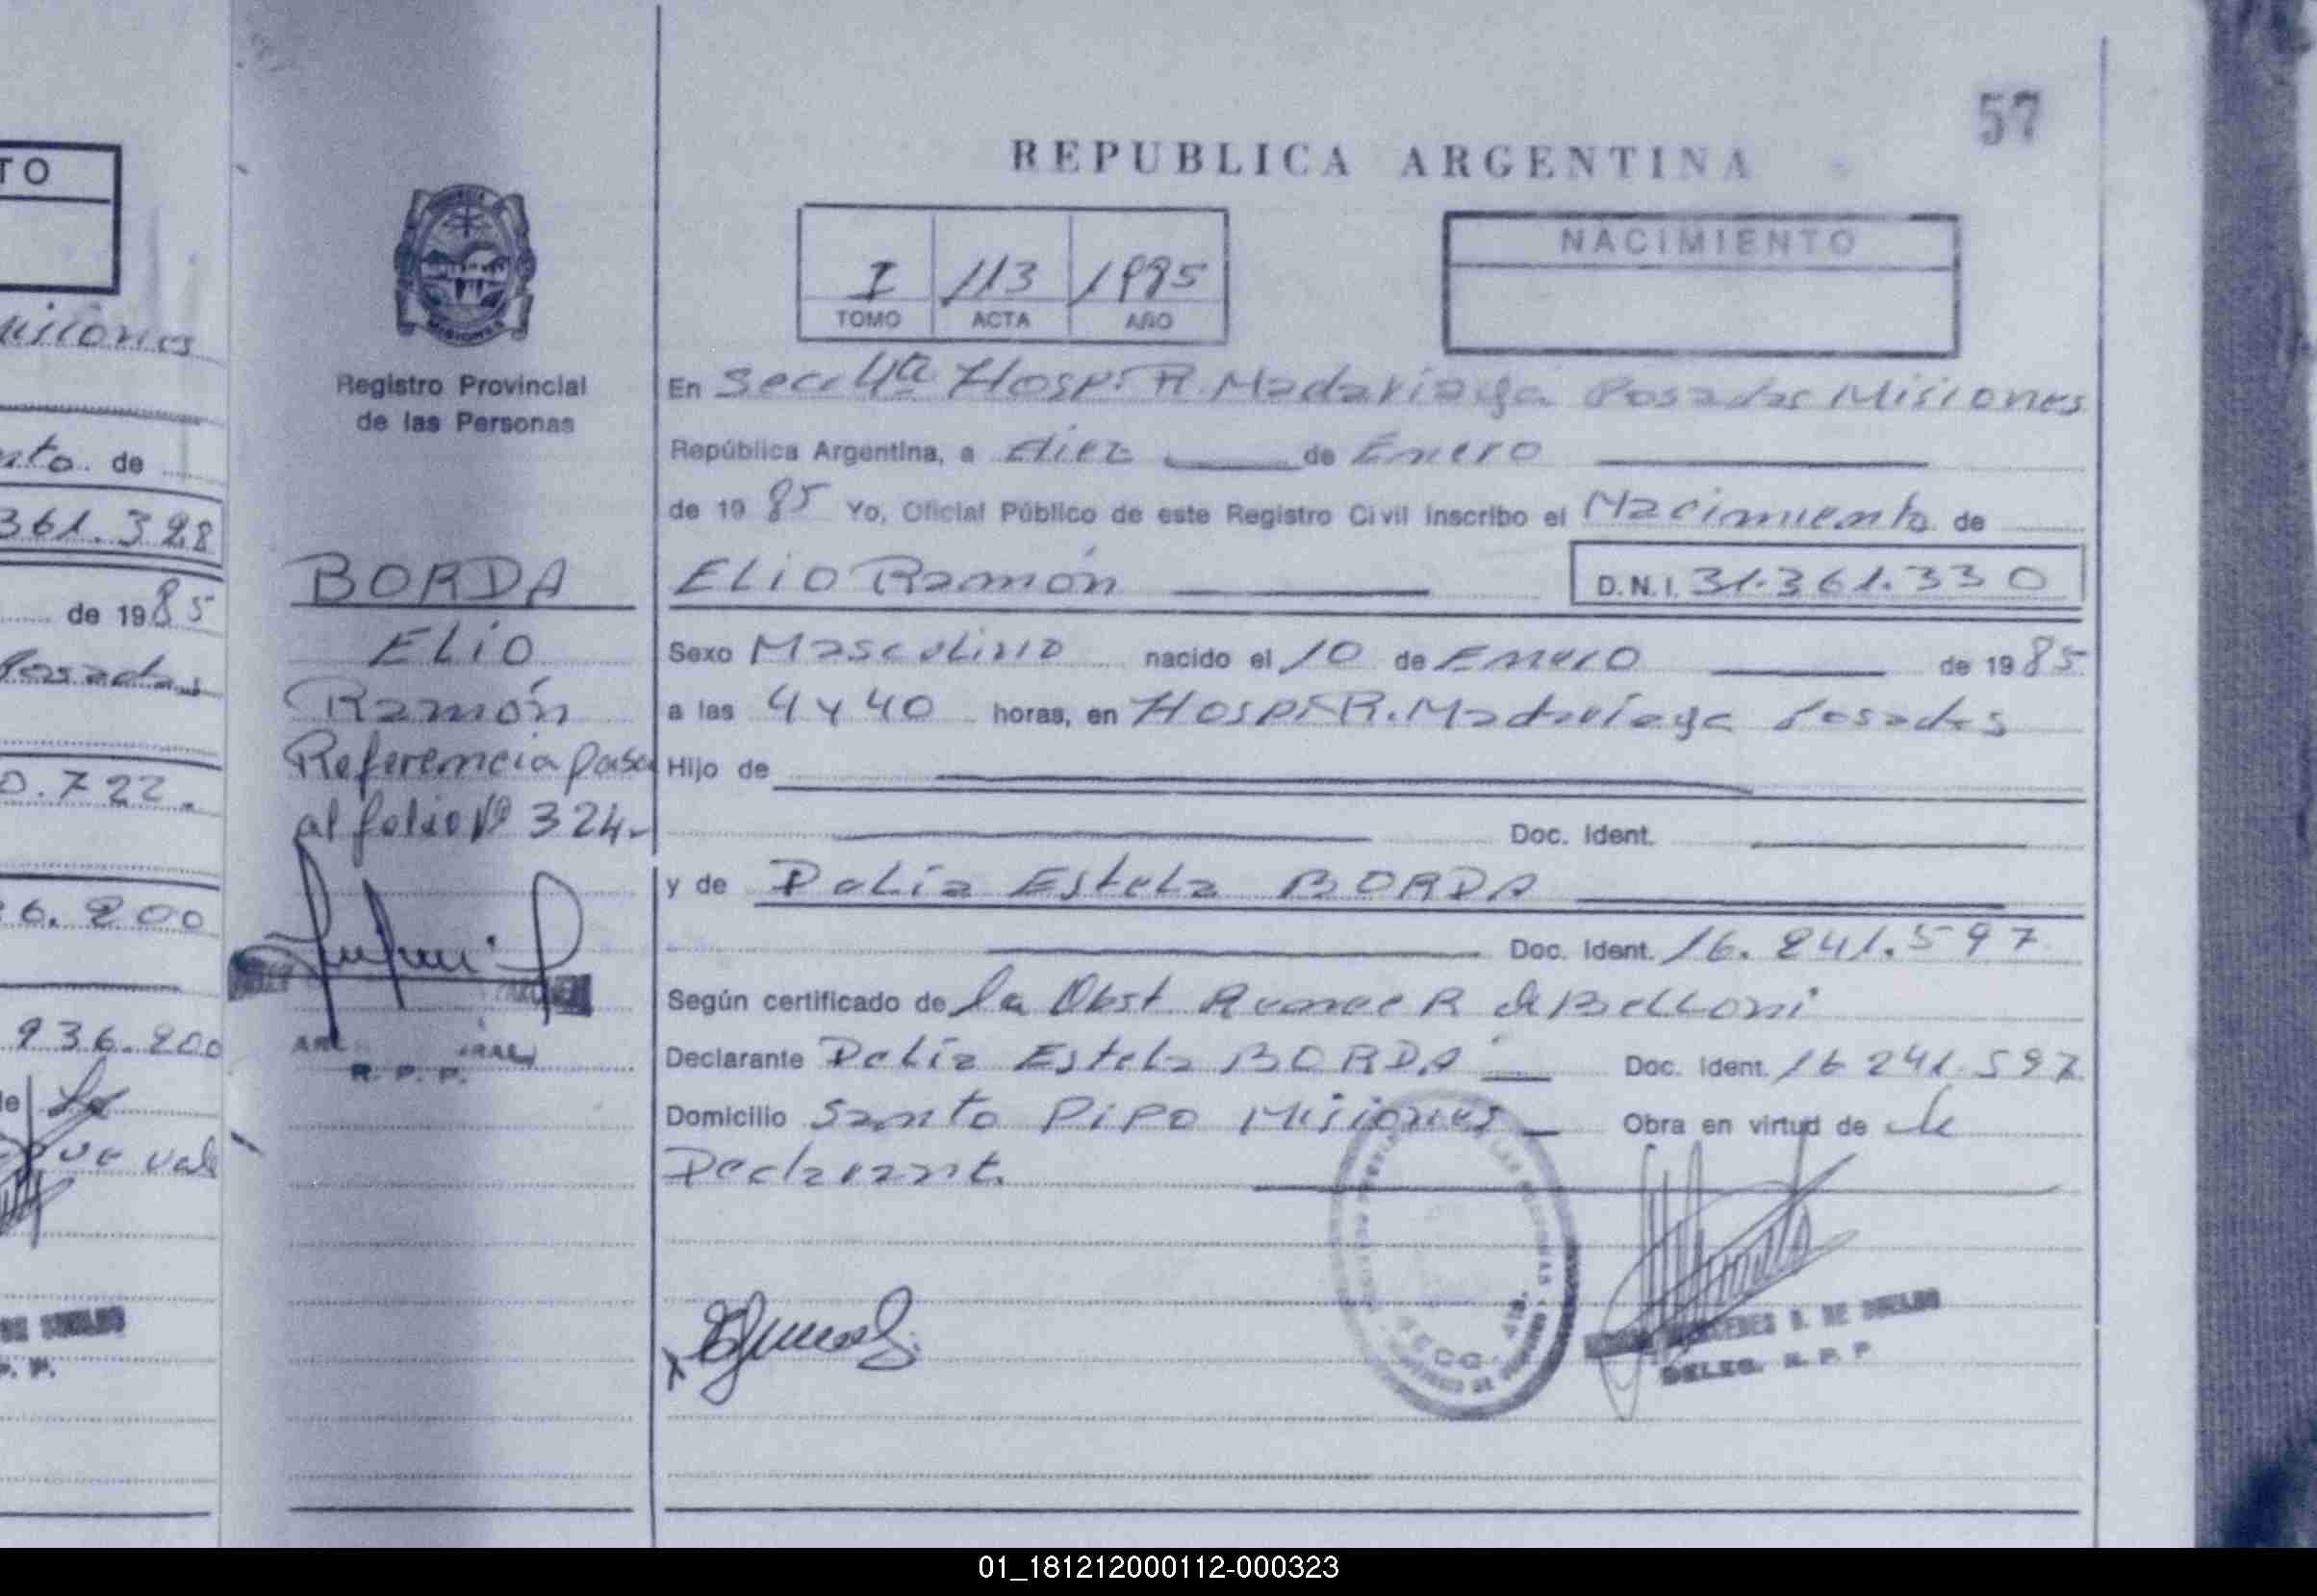 57
REPUBLICA ARGENTINA
TO
NACIMIENTO
I 113 1985
TOMO ACTA AÑO
Misiones
Registro Provincial
de las Personas
En Secc 4ª Hosp. R. Madariaga Posadas Misiones
República Argentina, a diez de Enero
de 1985 Yo, Oficial Público de este Registro Civil inscribo el Nacimiento de
nto de
361.328
BORDA
ELIO Ramón D.N.I. 31.361.330
de 1985
ELIO
Sexo Masculino nacido el 10 de Enero de 1985
Posadas
Ramón
a las 4 y 40 horas, en Hosp. R. Madariaga Posadas
Referencia pasa
Hijo de
0.722.
al folio Nº 324.-
Doc. Ident.
y de Delia Estela BORDA
6.200
Doc. Ident. 16.241.597
Según certificado de la Obst R de Belloni
936.200
Declarante Delia Estela BORDA Doc. Ident. 16 241.597
R. P. P.
Domicilio Santo Pipo Misiones Obra en virtud de
Declarant
que vale
DE
SECC.
DE
DELEG. R. P. P
P. P.
01_181212000112-000323